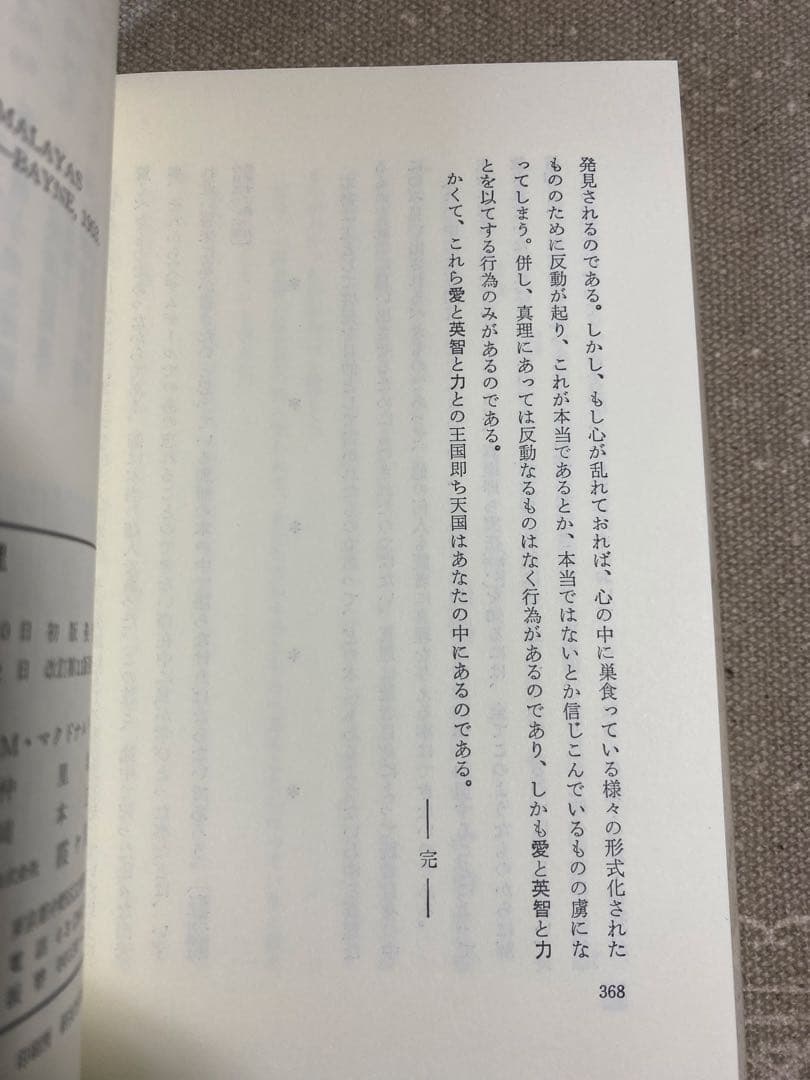 発見されるのである。しかし、もし心が乱れておれば、心の中に巣食っている様々の形式化された
もののために反動が起り、これが本当であるとか、本当ではないとか信じこんでいるものの虜にな
ってしまう。併し、真理にあっては反動なるものはなく行為があるのであり、しかも愛と英智と力
とを以てする行為のみがあるのである。
かくて、これら愛と英智と力との王国即ち天国はあなたの中にあるのである。
―― 完 ――
368
MALAYAS
BAYNE, 195
の日 初版
日 改訂
M・マクドナル
仲 里
本
電 話
振 替